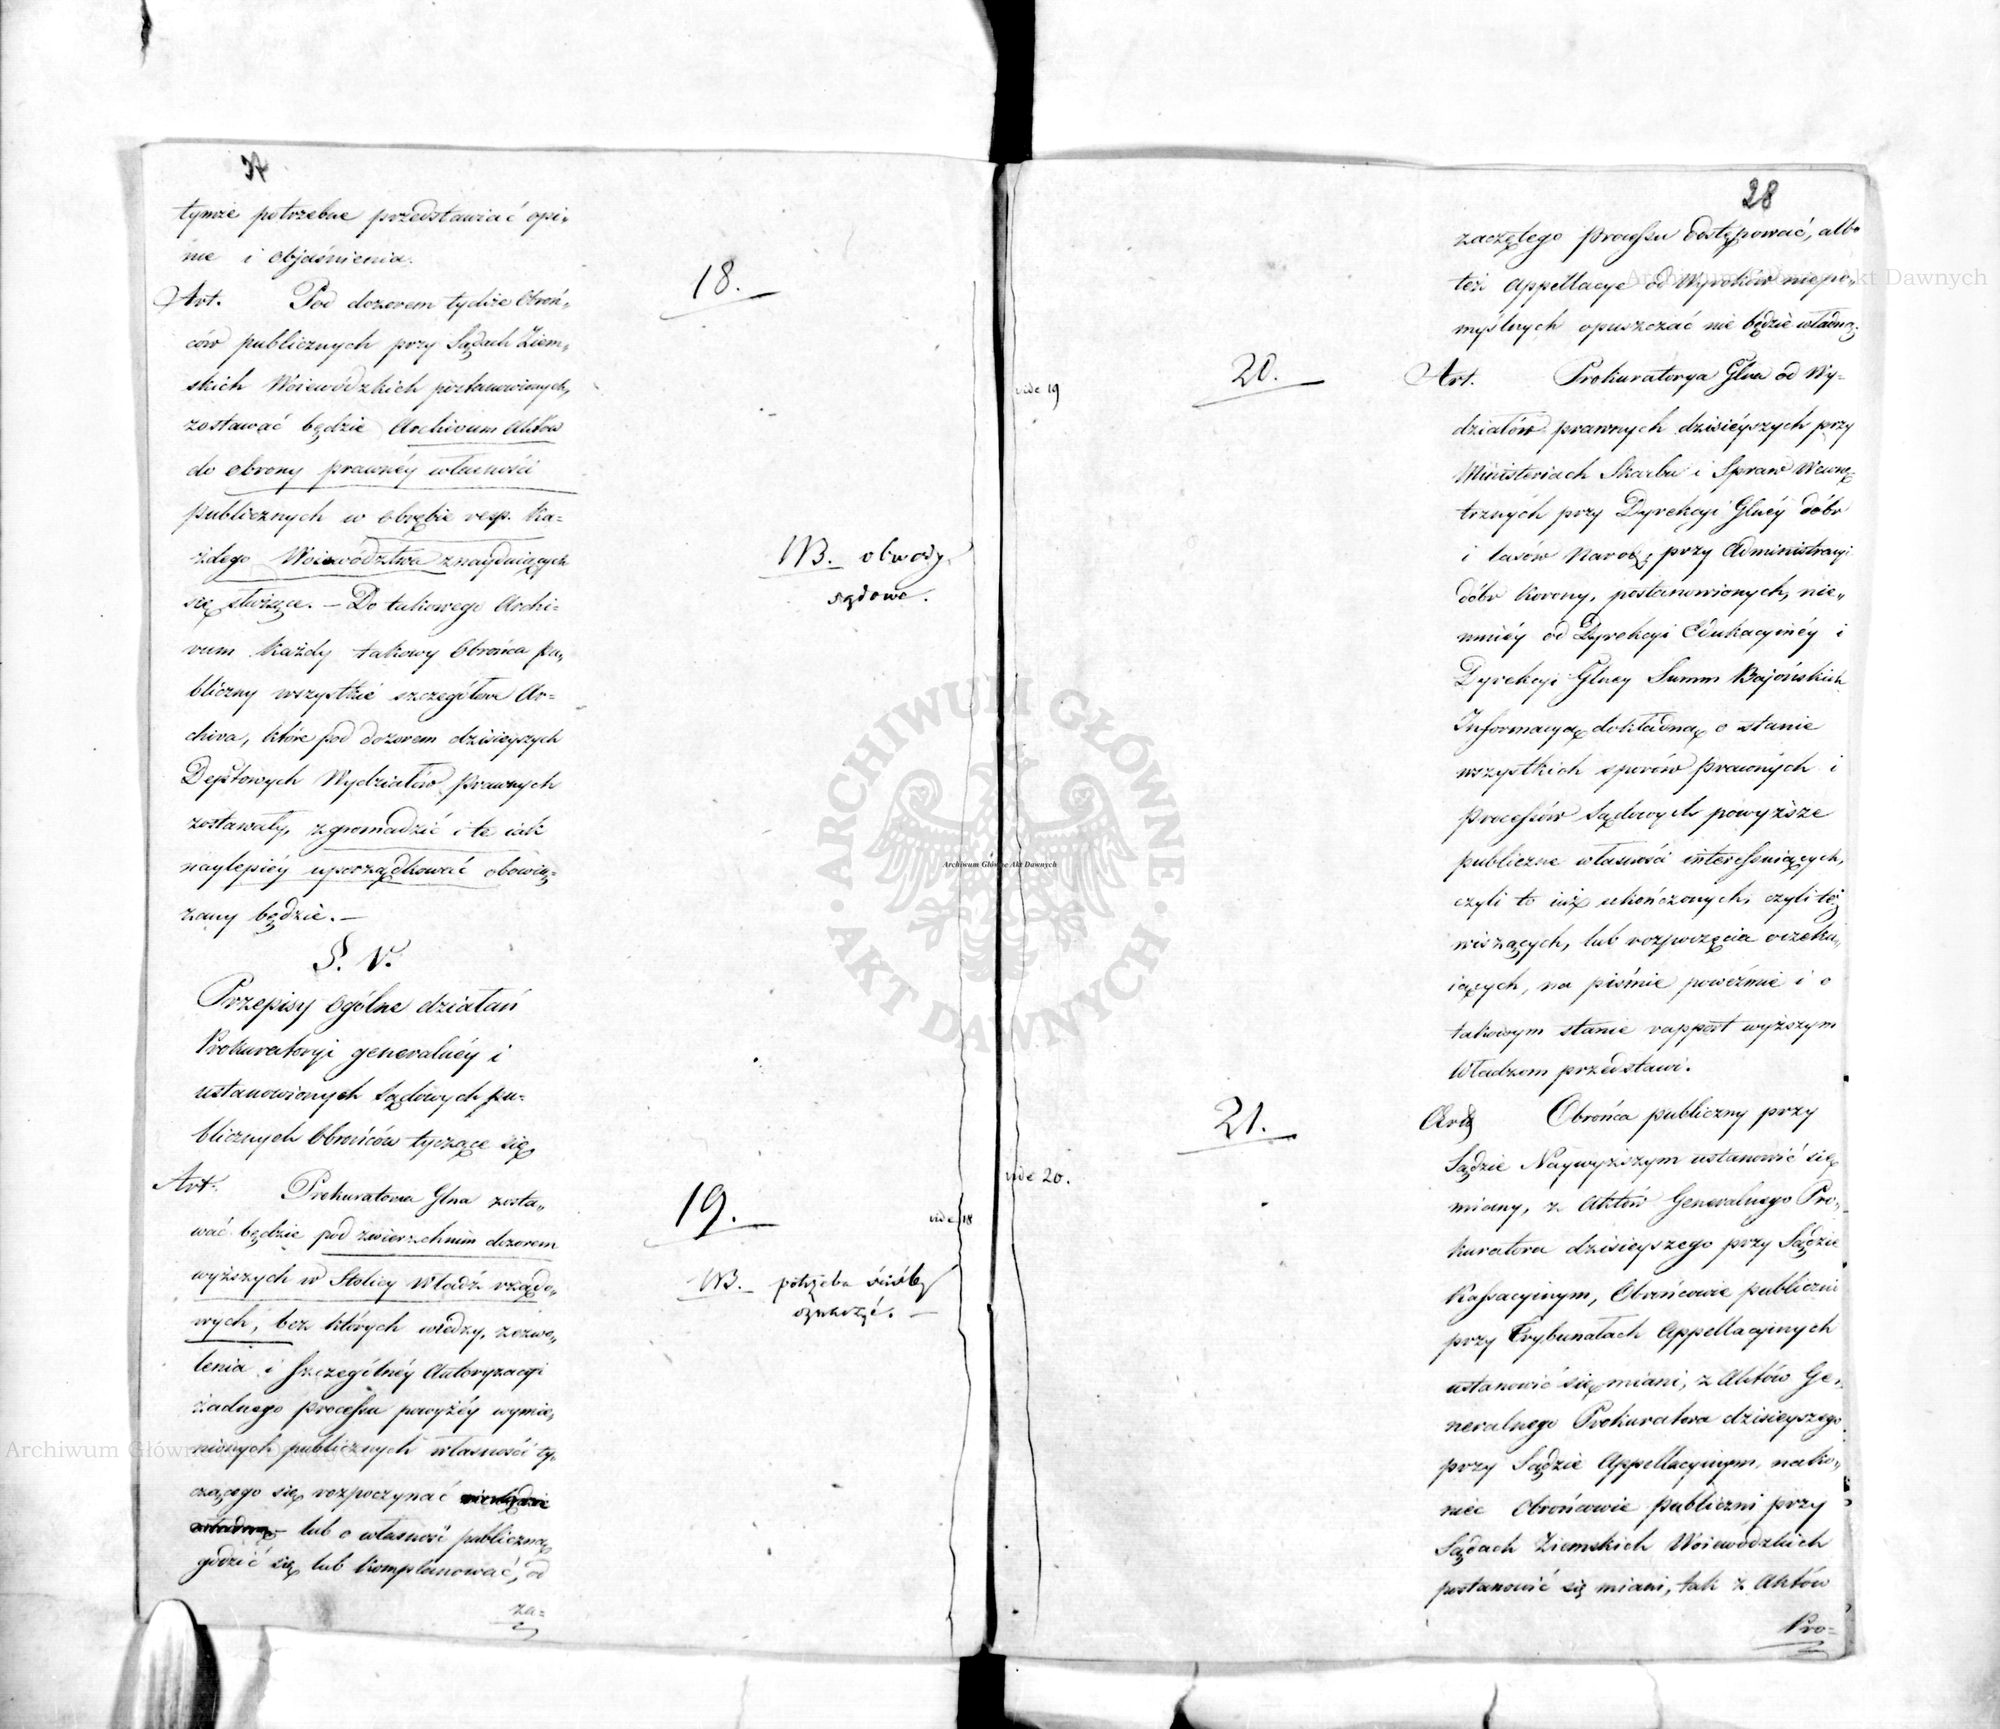 tymże potrzebne przedstawiać opi„
nie i objaśnienia.
Art. Pod dozorem tychże Obroń„
18.
ców publicznych przy Sądach Ziem„
skich Woiewódzkich postanowionych,
zostawać będzie Archivum Aktów
do obrony prawnéy własności
publicznych w obrębie resp. ka=
żdego Woiewództwa znayduiących
NB. obwody
sądowe.
się służące. – Do takowego Archi=
vum każdy takowy Obrońca pu„
bliczny wszystkie szczegółowe Ar=
chiva, które pod dozorem dzisieyszych
Deptowych Wydziałów Prawnych
zostawały, zgromadzić i te iak
naylepiéy uporządkować obowią„
zany będzie. –
§. V.
Przepisy ogólne działań
Prokuratoryi generalnéy i
ustanowionych Sądowych pu=
blicznych Obrońców tyczące się
Art. Prokuratorya Glna zosta„
19.
vide 18
wać będzie pod zwierzchnim dozorem
wyższych w Stolicy Władz rządo„
NB. potrzeba ściśléy
oznaczyć. –
wych, bez których wiedzy, zezwo„
lenia i szczególnéy Autoryzacyi
żadnego processu powyżéy wymie„
nionych publicznych własności ty„
czącego się rozpoczynać niebędzie
władną – lub o własność publiczną
godzić się lub komplanować, od
za=
28
zaczętego Processu odstępować, albo
też Appellacye od Wyroków niepo„
myślnych opuszczać nie będzie władną.
vide 19
20.
Art. Prokuratorya Glna od Wy=
działów prawnych dzisiéyszych przy
Ministeriach Skarbu i Spraw Wewnę„
trznych przy Dyrekcyi Glnéy dóbr
i lasów Narod; przy Administracyi
dóbr Korony, postanowionych, nie„
mniéy od Dyrekcyi Edukacyinéy i
Dyrekcyi Glney Summ Bajońskich
Informacyą dokładną o stanie
wszystkich sporów Prawnych i
Processów Sądowych powyższe
publiczne własności interessuiących,
czyli to iuż ukończonych, czyli też
wiszących, lub rozpoczęcia oczeku„
iących, na piśmie poweźmie i o
takowym stanie rapport wyższym
Władzom przedstawi.
21.
Art. Obrońca publiczny przy
vide 20.
Sądzie Naywyższym ustanowić się
miany, z Aktów Generalnego Pro„
kuratora dzisieyszego przy Sądzie
Kassacyinym, Obrońcowie publiczni
przy Trybunałach Appellacyinych
ustanowić się miani, z Aktów Ge„
neralnego Prokuratora dzisieyszego
przy Sądzie Appellacyinym, nako„
niec Obrońcowie publiczni przy
Sądach Ziemskich Woiewódzkich
postanowić się miani, tak z Aktów
Pro=
Archiwum Główne Akt Dawnych
ARCHIWUM GŁÓWNE · AKT DAWNYCH ·